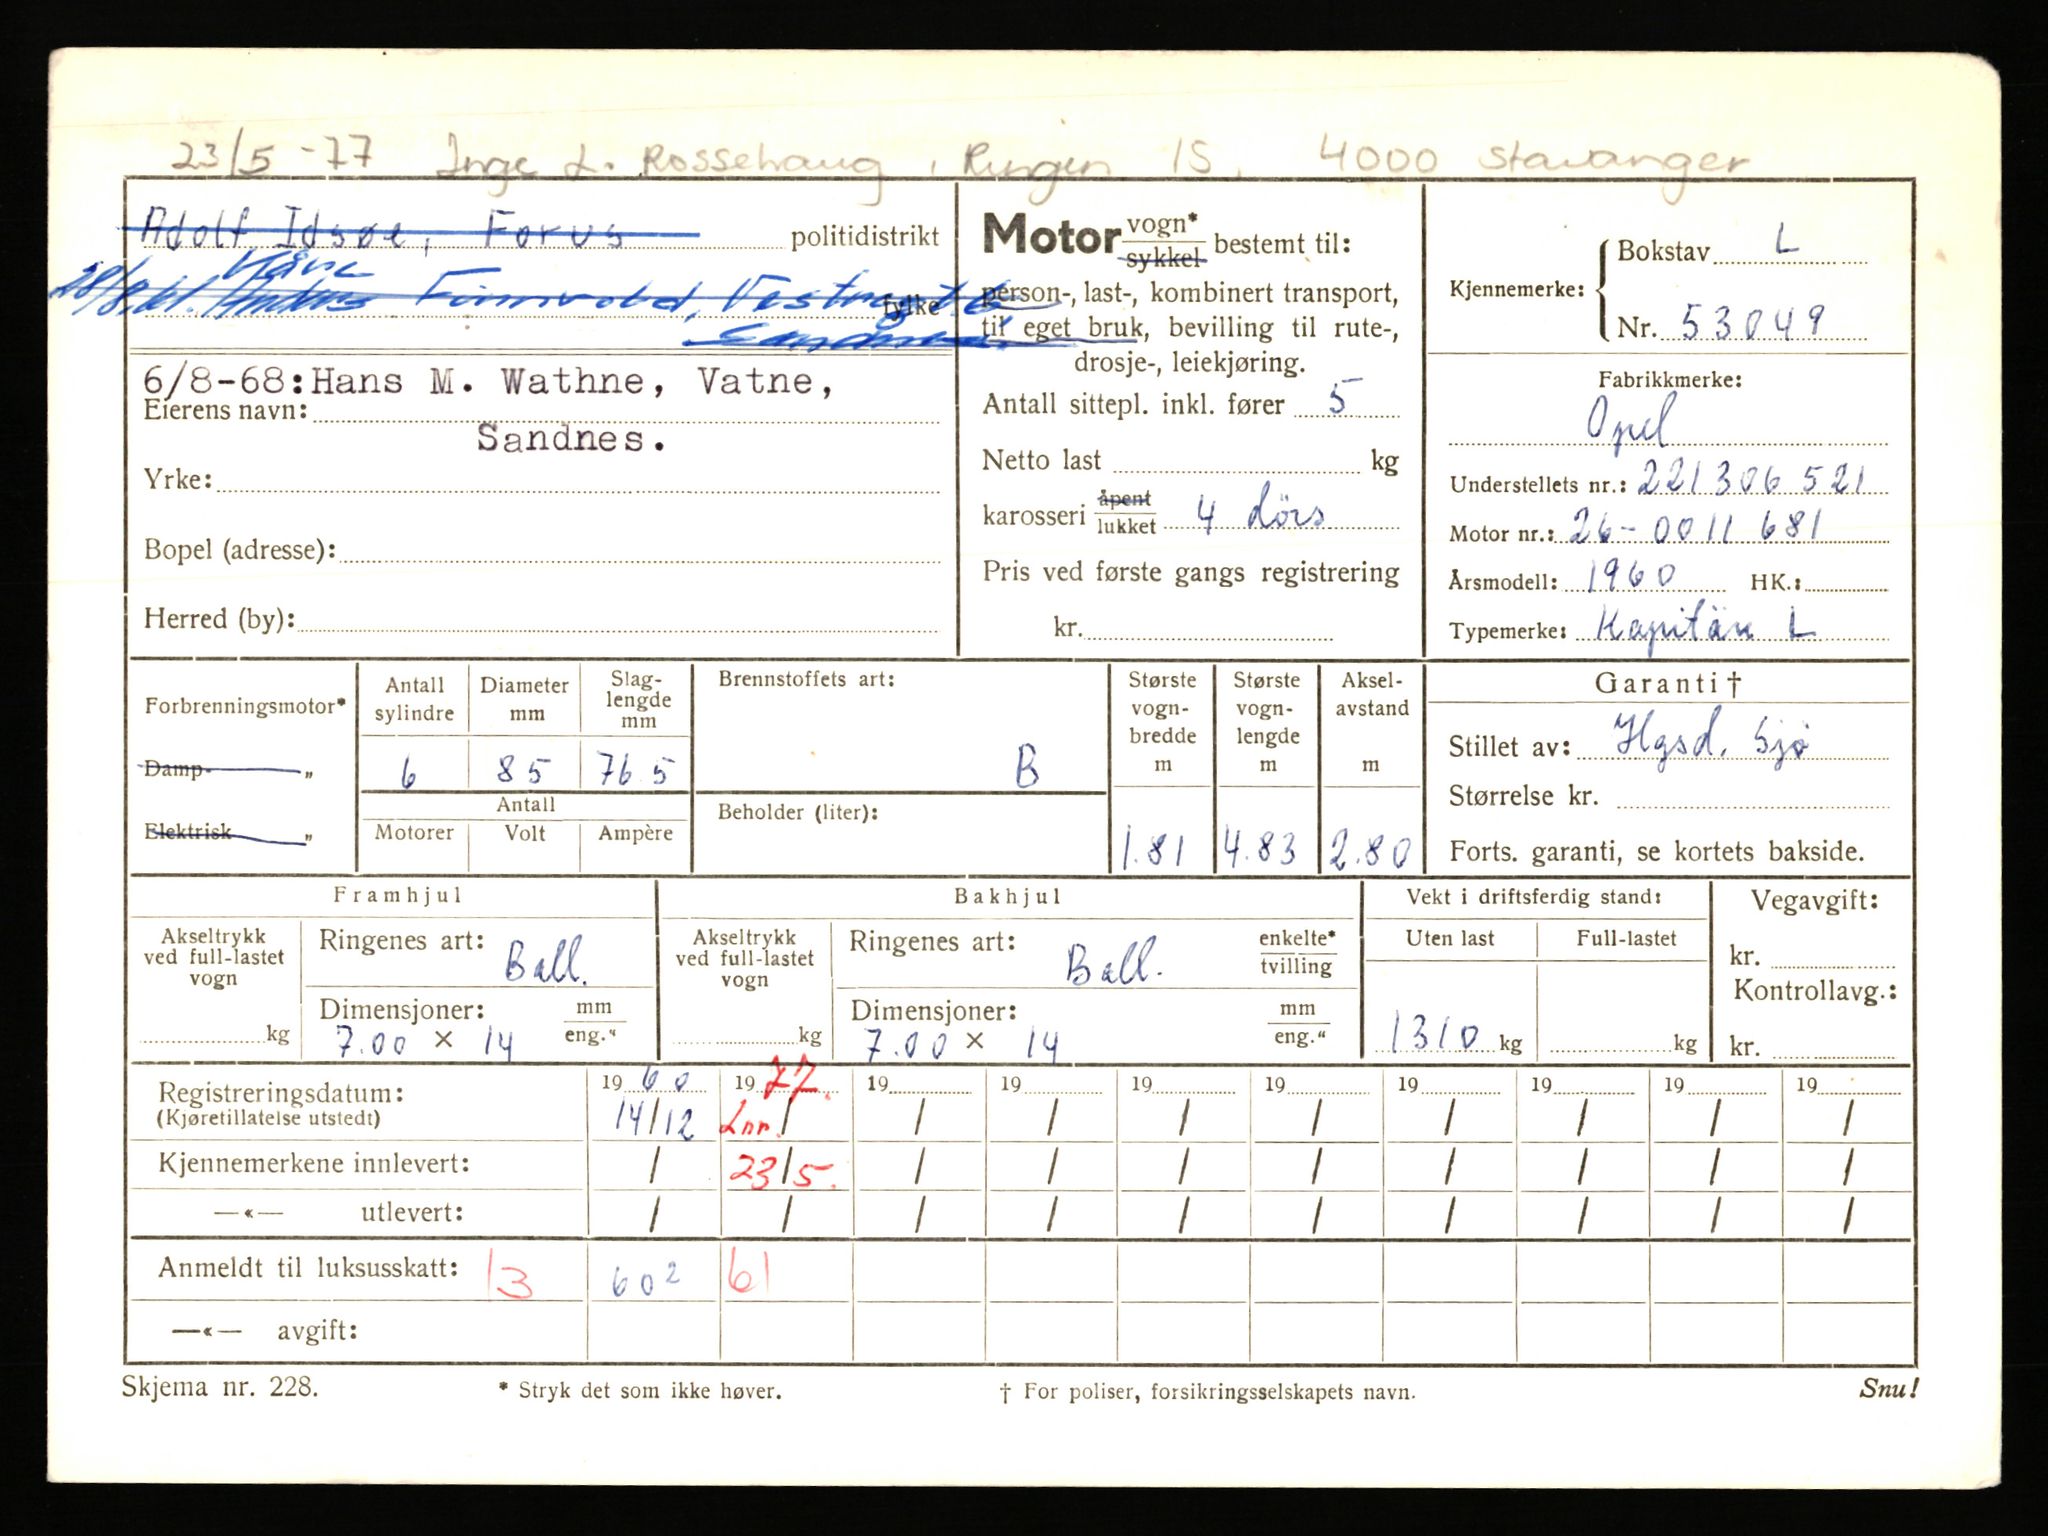 23/5 -77 Inge L. Rossehaug, Ringen 15, 4000 Stavanger
Adolf Idsøe, Forus politidistrikt
Kåre
fylke
Sandnes
6/8-68: Hans M. Wathne, Vatne,
Eierens navn:
Sandnes.
Yrke:
Bopel (adresse):
Herred (by):
Motor vogn* sykkel bestemt til:
person-, last-, kombinert transport,
til eget bruk, bevilling til rute-,
drosje-, leiekjøring.
Antall sittepl. inkl. fører 5
Netto last kg
karosseri åpent lukket 4 dörs
Pris ved første gangs registrering
kr.
Kjennemerke: Bokstav L
Nr. 53049
Fabrikkmerke:
Opel
Understellets nr.: 221306521
Motor nr.: 26-0011681
Årsmodell: 1960 HK.:
Typemerke: Kapitän L
Forbrenningsmotor*
Damp- „
Elektrisk „
Antall sylindre
6
Diameter mm
85
Slag-lengde mm
76.5
Antall
Motorer Volt Ampère
Brennstoffets art:
B
Beholder (liter):
Største vogn-bredde m
1.81
Største vogn-lengde m
4.83
Aksel-avstand m
2.80
Garanti †
Stillet av: Hgsd. Sjø
Størrelse kr.
Forts. garanti, se kortets bakside.
Framhjul
Akseltrykk ved full-lastet vogn
kg
Ringenes art: Ball.
Dimensjoner: mm eng.“
7.00 × 14
Bakhjul
Akseltrykk ved full-lastet vogn
kg
Ringenes art: Ball. enkelte* tvilling
Dimensjoner: mm eng.“
7.00 × 14
Vekt i driftsferdig stand:
Uten last Full-lastet
1310 kg kg
Vegavgift:
kr.
Kontrollavg.:
kr.
Registreringsdatum: 1960 1977. 19 19 19 19 19 19 19 19
(Kjøretillatelse utstedt) 14/12 Lnr. / / / / / / / / /
Kjennemerkene innlevert: / 23/5. / / / / / / / /
—«— utlevert: / / / / / / / / / /
Anmeldt til luksusskatt: 13 60² 61
—«— avgift:
Skjema nr. 228. * Stryk det som ikke høver. † For poliser, forsikringsselskapets navn. Snu!